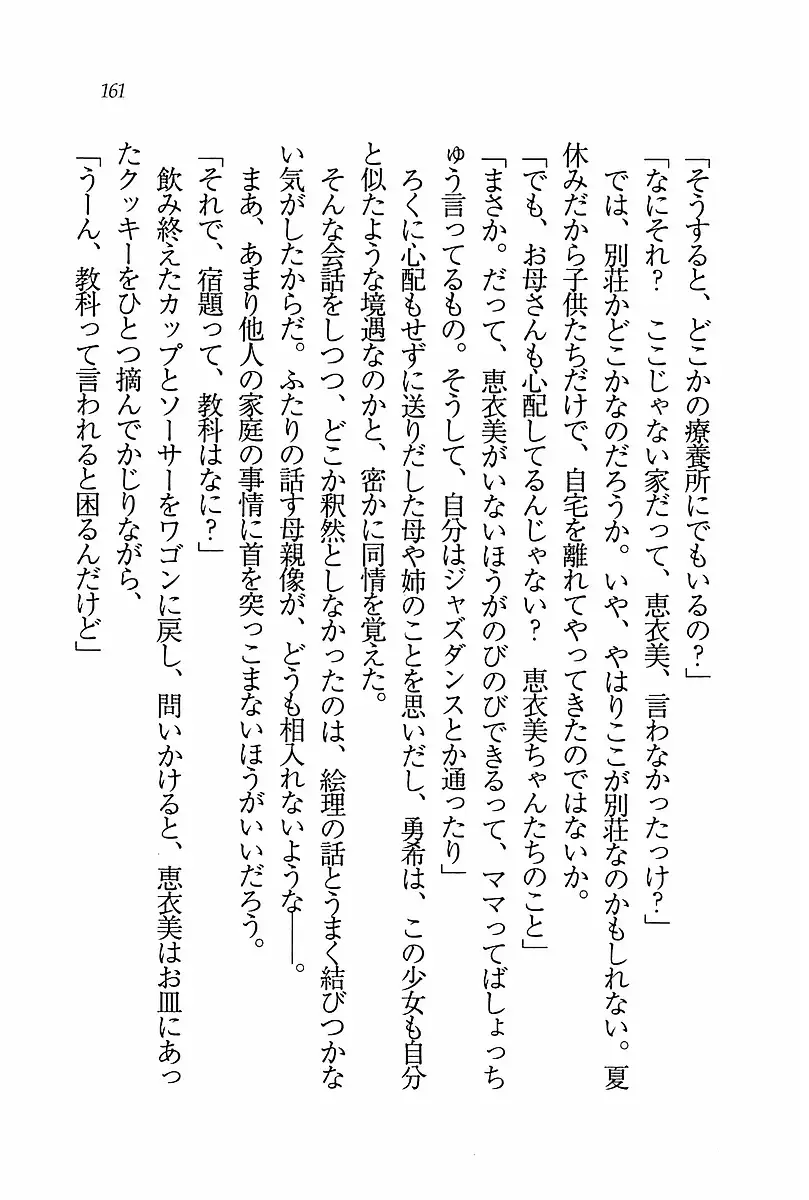 161
「そうすると、どこかの療養所にでもいるの？」
「なにそれ？　ここじゃない家だって、恵衣美、言わなかったっけ？」
　では、別荘かどこかなのだろうか。いや、やはりここが別荘なのかもしれない。夏
休みだから子供たちだけで、自宅を離れてやってきたのではないか。
「でも、お母さんも心配してるんじゃない？　恵衣美ちゃんたちのこと」
「まさか。だって、恵衣美がいないほうがのびのびできるって、ママってばしょっち
ゅう言ってるもの。そうして、自分はジャズダンスとか通ったり」
　ろくに心配もせずに送りだした母や姉のことを思いだし、勇希は、この少女も自分
と似たような境遇なのかと、密かに同情を覚えた。
　そんな会話をしつつ、どこか釈然としなかったのは、絵理の話とうまく結びつかな
い気がしたからだ。ふたりの話す母親像が、どうも相入れないような――。
　まあ、あまり他人の家庭の事情に首を突っこまないほうがいいだろう。
「それで、宿題って、教科はなに？」
　飲み終えたカップとソーサーをワゴンに戻し、問いかけると、恵衣美はお皿にあっ
たクッキーをひとつ摘んでかじりながら、
「うーん、教科って言われると困るんだけど」